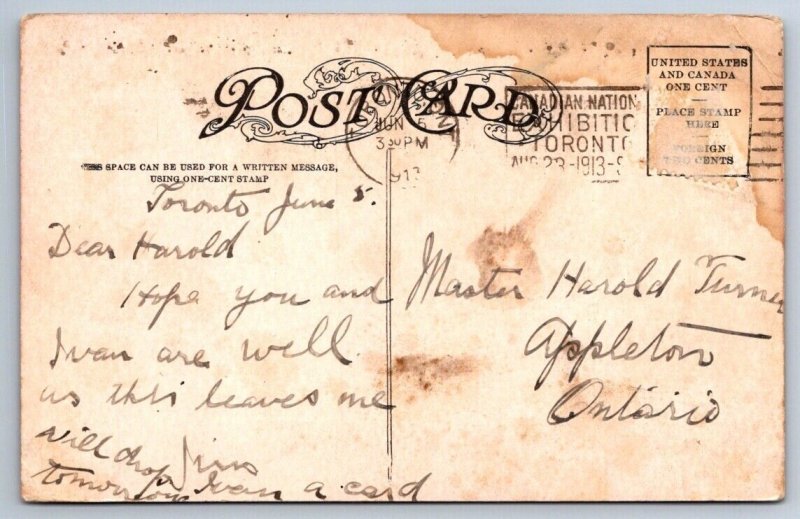 POST CARD
JUN
3 30 PM
1913
CANADIAN NATION
EXHIBITIO
TORONTO
AUG 23-1913-S
UNITED STATES
AND CANADA
ONE CENT
PLACE STAMP
HERE
FOREIGN
TWO CENTS
THIS SPACE CAN BE USED FOR A WRITTEN MESSAGE,
USING ONE-CENT STAMP
Toronto June 5.
Dear Harold
Hope you and
Ivan are well
as this leaves me
will drop
tomorrow Ivan a card
Master Harold Turner
Appleton
Ontario